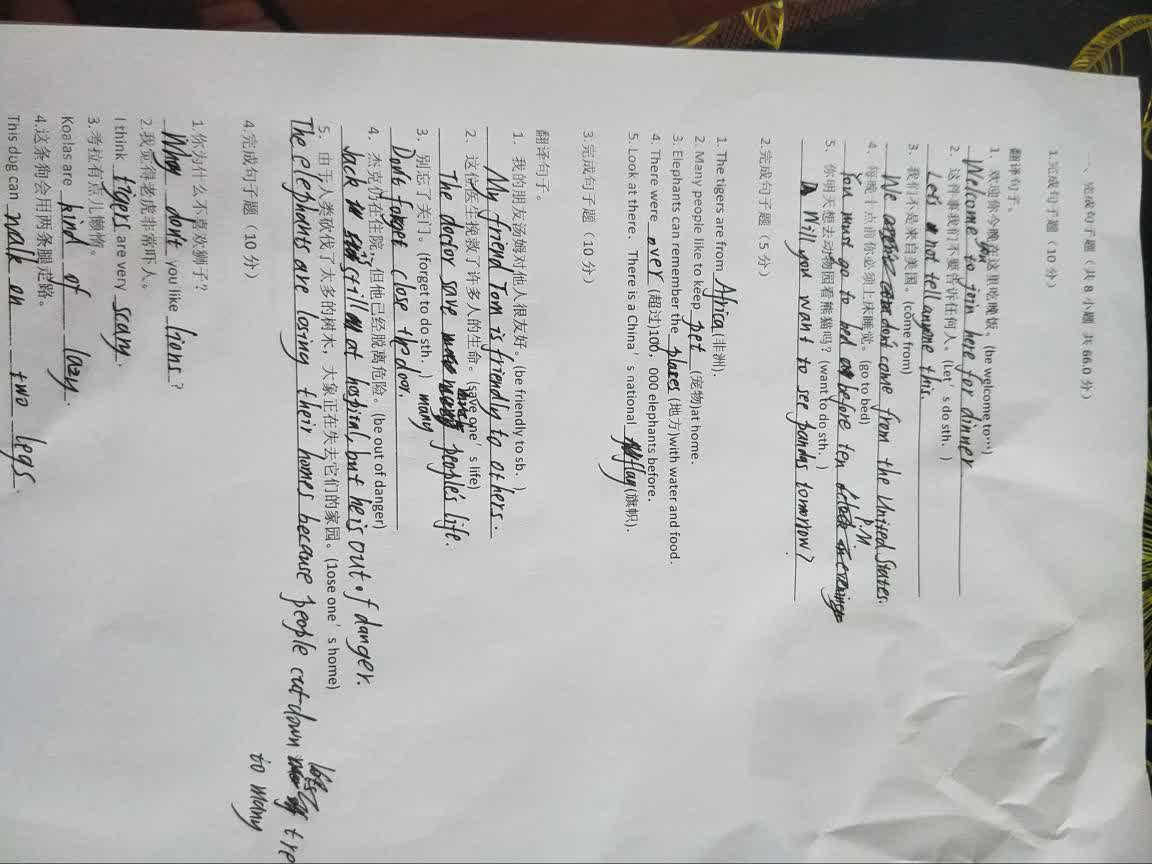 一、完成句子题（共 8 小题 共 66.0 分）
1.完成句子题（10 分）
翻译句子。
1. 欢迎你今晚在这里吃晚饭。(be welcome to…)
Welcome you to join here for dinner
2. 这件事我们不要告诉任何人。(Let's do sth. )
Let's not tell anyone this.
3. 我们不是来自美国。(come from)
We don't come from the United States.
4. 每晚十点前你必须上床睡觉。(go to bed)
You must go to bed before ten P.M.
5. 你明天想去动物园看熊猫吗？(want to do sth. )
Will you want to see pandas tomorrow?
2.完成句子题（5 分）
1. The tigers are from Africa (非洲).
2. Many people like to keep pet (宠物)at home.
3. Elephants can remember the places (地方)with water and food.
4. There were over (超过)100，000 elephants before.
5. Look at there．There is a China's national flag (旗帜).
3.完成句子题（10 分）
翻译句子。
1. 我的朋友汤姆对他人很友好。(be friendly to sb. )
My friend Tom is friendly to others.
2. 这位医生挽救了许多人的生命。(save one's life)
The doctor save many people's life.
3. 别忘了关门。(forget to do sth. )
Don't forget close the door.
4. 杰克仍在住院，但他已经脱离危险。(be out of danger)
Jack is still at hospital, but he is out of danger.
5. 由于人类砍伐了太多的树木，大象正在失去它们的家园。(lose one's home)
The elephants are losing their homes because people cut down to many tre
4.完成句子题（10 分）
1.你为什么不喜欢狮子？
Why don't you like lions ?
2.我觉得老虎非常吓人。
I think tigers are very scary.
3.考拉有点儿懒惰。
Koalas are kind of lazy.
4.这条狗会用两条腿走路。
This dog can walk on two legs.